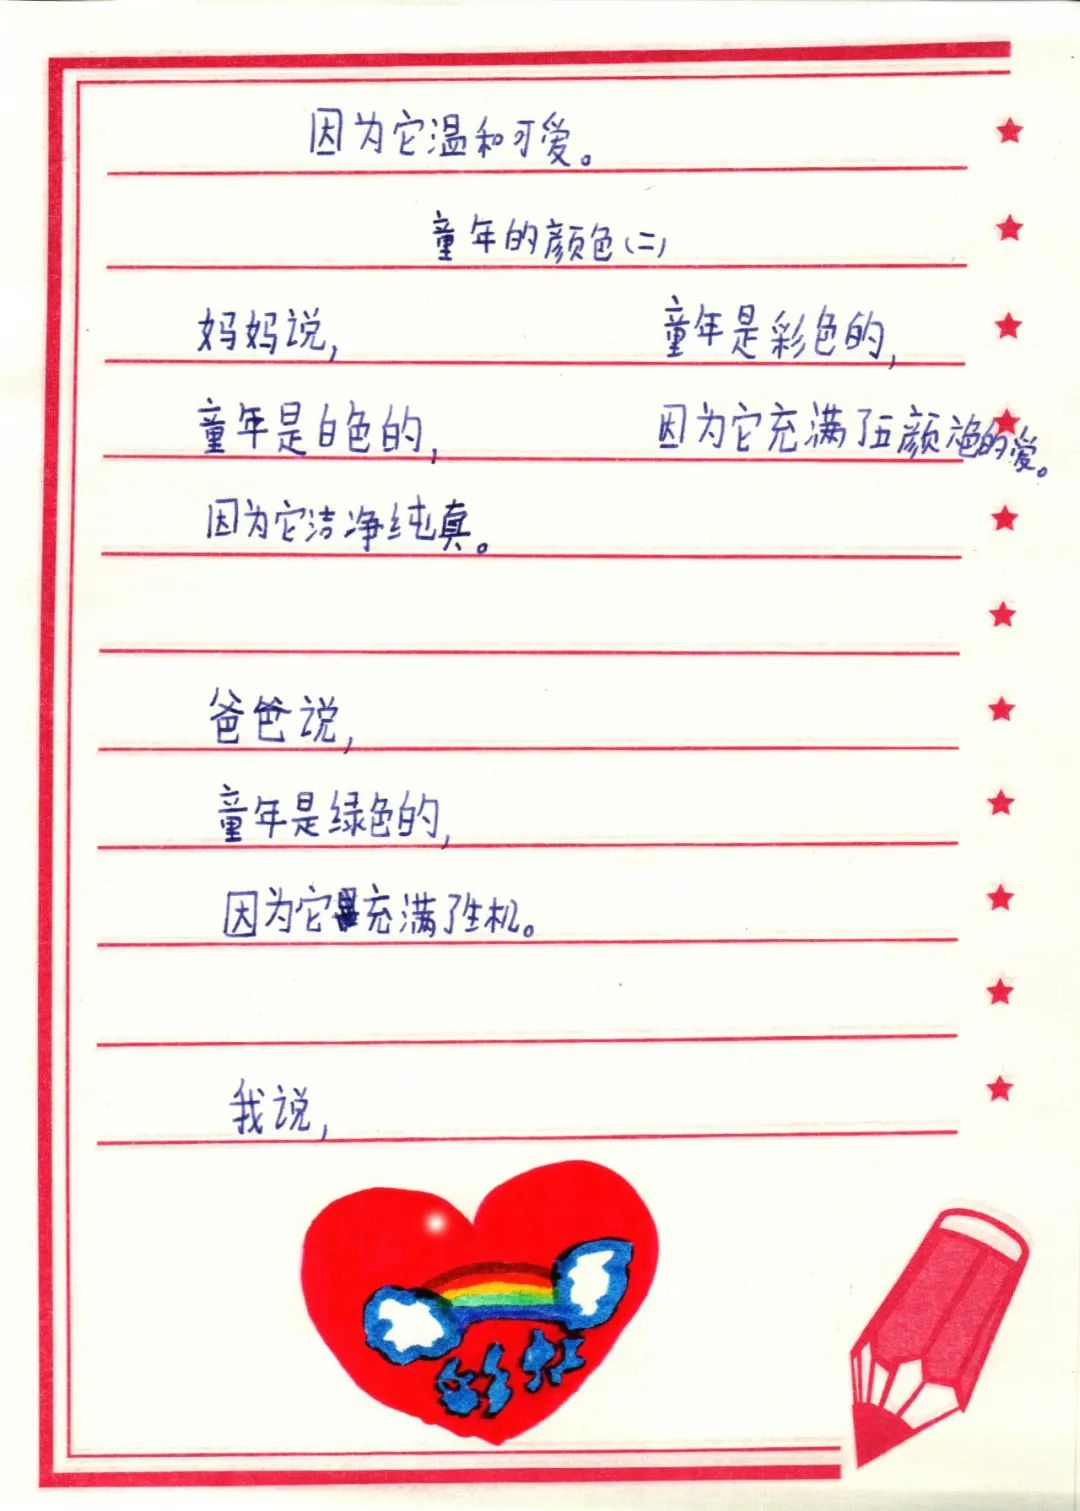 因为它温和可爱。
童年的颜色(二)
妈妈说,
童年是白色的,
因为它洁净纯真。
爸爸说,
童年是绿色的,
因为它充满了生机。
我说,
童年是彩色的,
因为它充满了五颜六色的爱。
彩虹